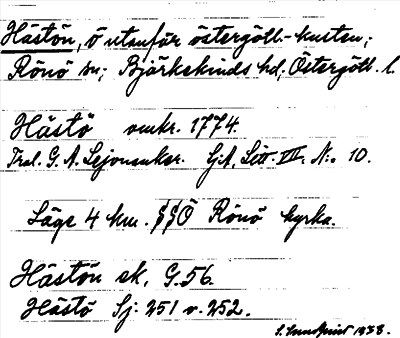 Hästön, ö utanför östergötl.-kusten;
Rönö sn; Björkekinds hd; Östergötl. l.
Hästö omkr. 1774.
G. A. Lejonankar. Sj.A, Litt. VII. No. 10.
Läge 4 km. SSÖ Rönö kyrka.
Hästön ek. G.56.
Hästö Sj: 251 o. 252.
S. Sundqvist 1933.